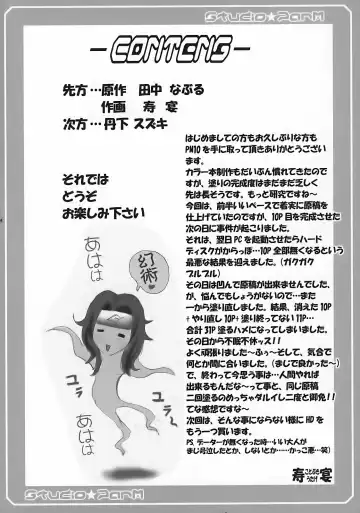 Studio★ParM
-CONTENS-
先方…原作 田中 なぶる
作画 寿 宴
次方…丹下 スズキ
それでは
どうぞ
お楽しみ下さい
はじめましての方もお久しぶりな方も
PM10を手に取って頂きありがとうござい
ます。
カラー本制作もだいぶん慣れてきたので
すが、塗りの完成度はまだまだ乏しく
先は長そうです。もっと研究ですね~
今回は、前半いいペースで着実に原稿を
仕上げていたのですが、10P目を完成させた
次の日に事件が起こりました。
それは、翌日PCを起動させたらハード
ディスクがからっぽ…10P全部無くなるという
最悪な結果を迎えました。(ガクガク
ブルブル)
その日は凹んで原稿が出来ませんでした
が、悩んでもしょうがないので…また
一から塗り直しました。結果、消えた10P
+やり直し10P+塗り終ってない11P…
合計31P塗るハメになってしまいました。
その日から不眠不休ッス!!
よく頑張りました~ふぅ~そして、気合で
何とか間に合いました。(まじで良かった~)
で、終わって今思う事は…人間やれば
出来るもんだな~って事と、同じ原稿
二回塗るのめっちゃダルイし二度と御免!!
てな感想ですな~
次回は、そんな事にならない様にHDを
もう一つ買います。
PS. データーが無くなった時…いい大人が
まじ号泣したとか、しないとか……かっこ悪…笑)
寿 ことぶき うたげ 宴
あはは
幻術
ユラ
ユラ
あはは
Studio★ParM